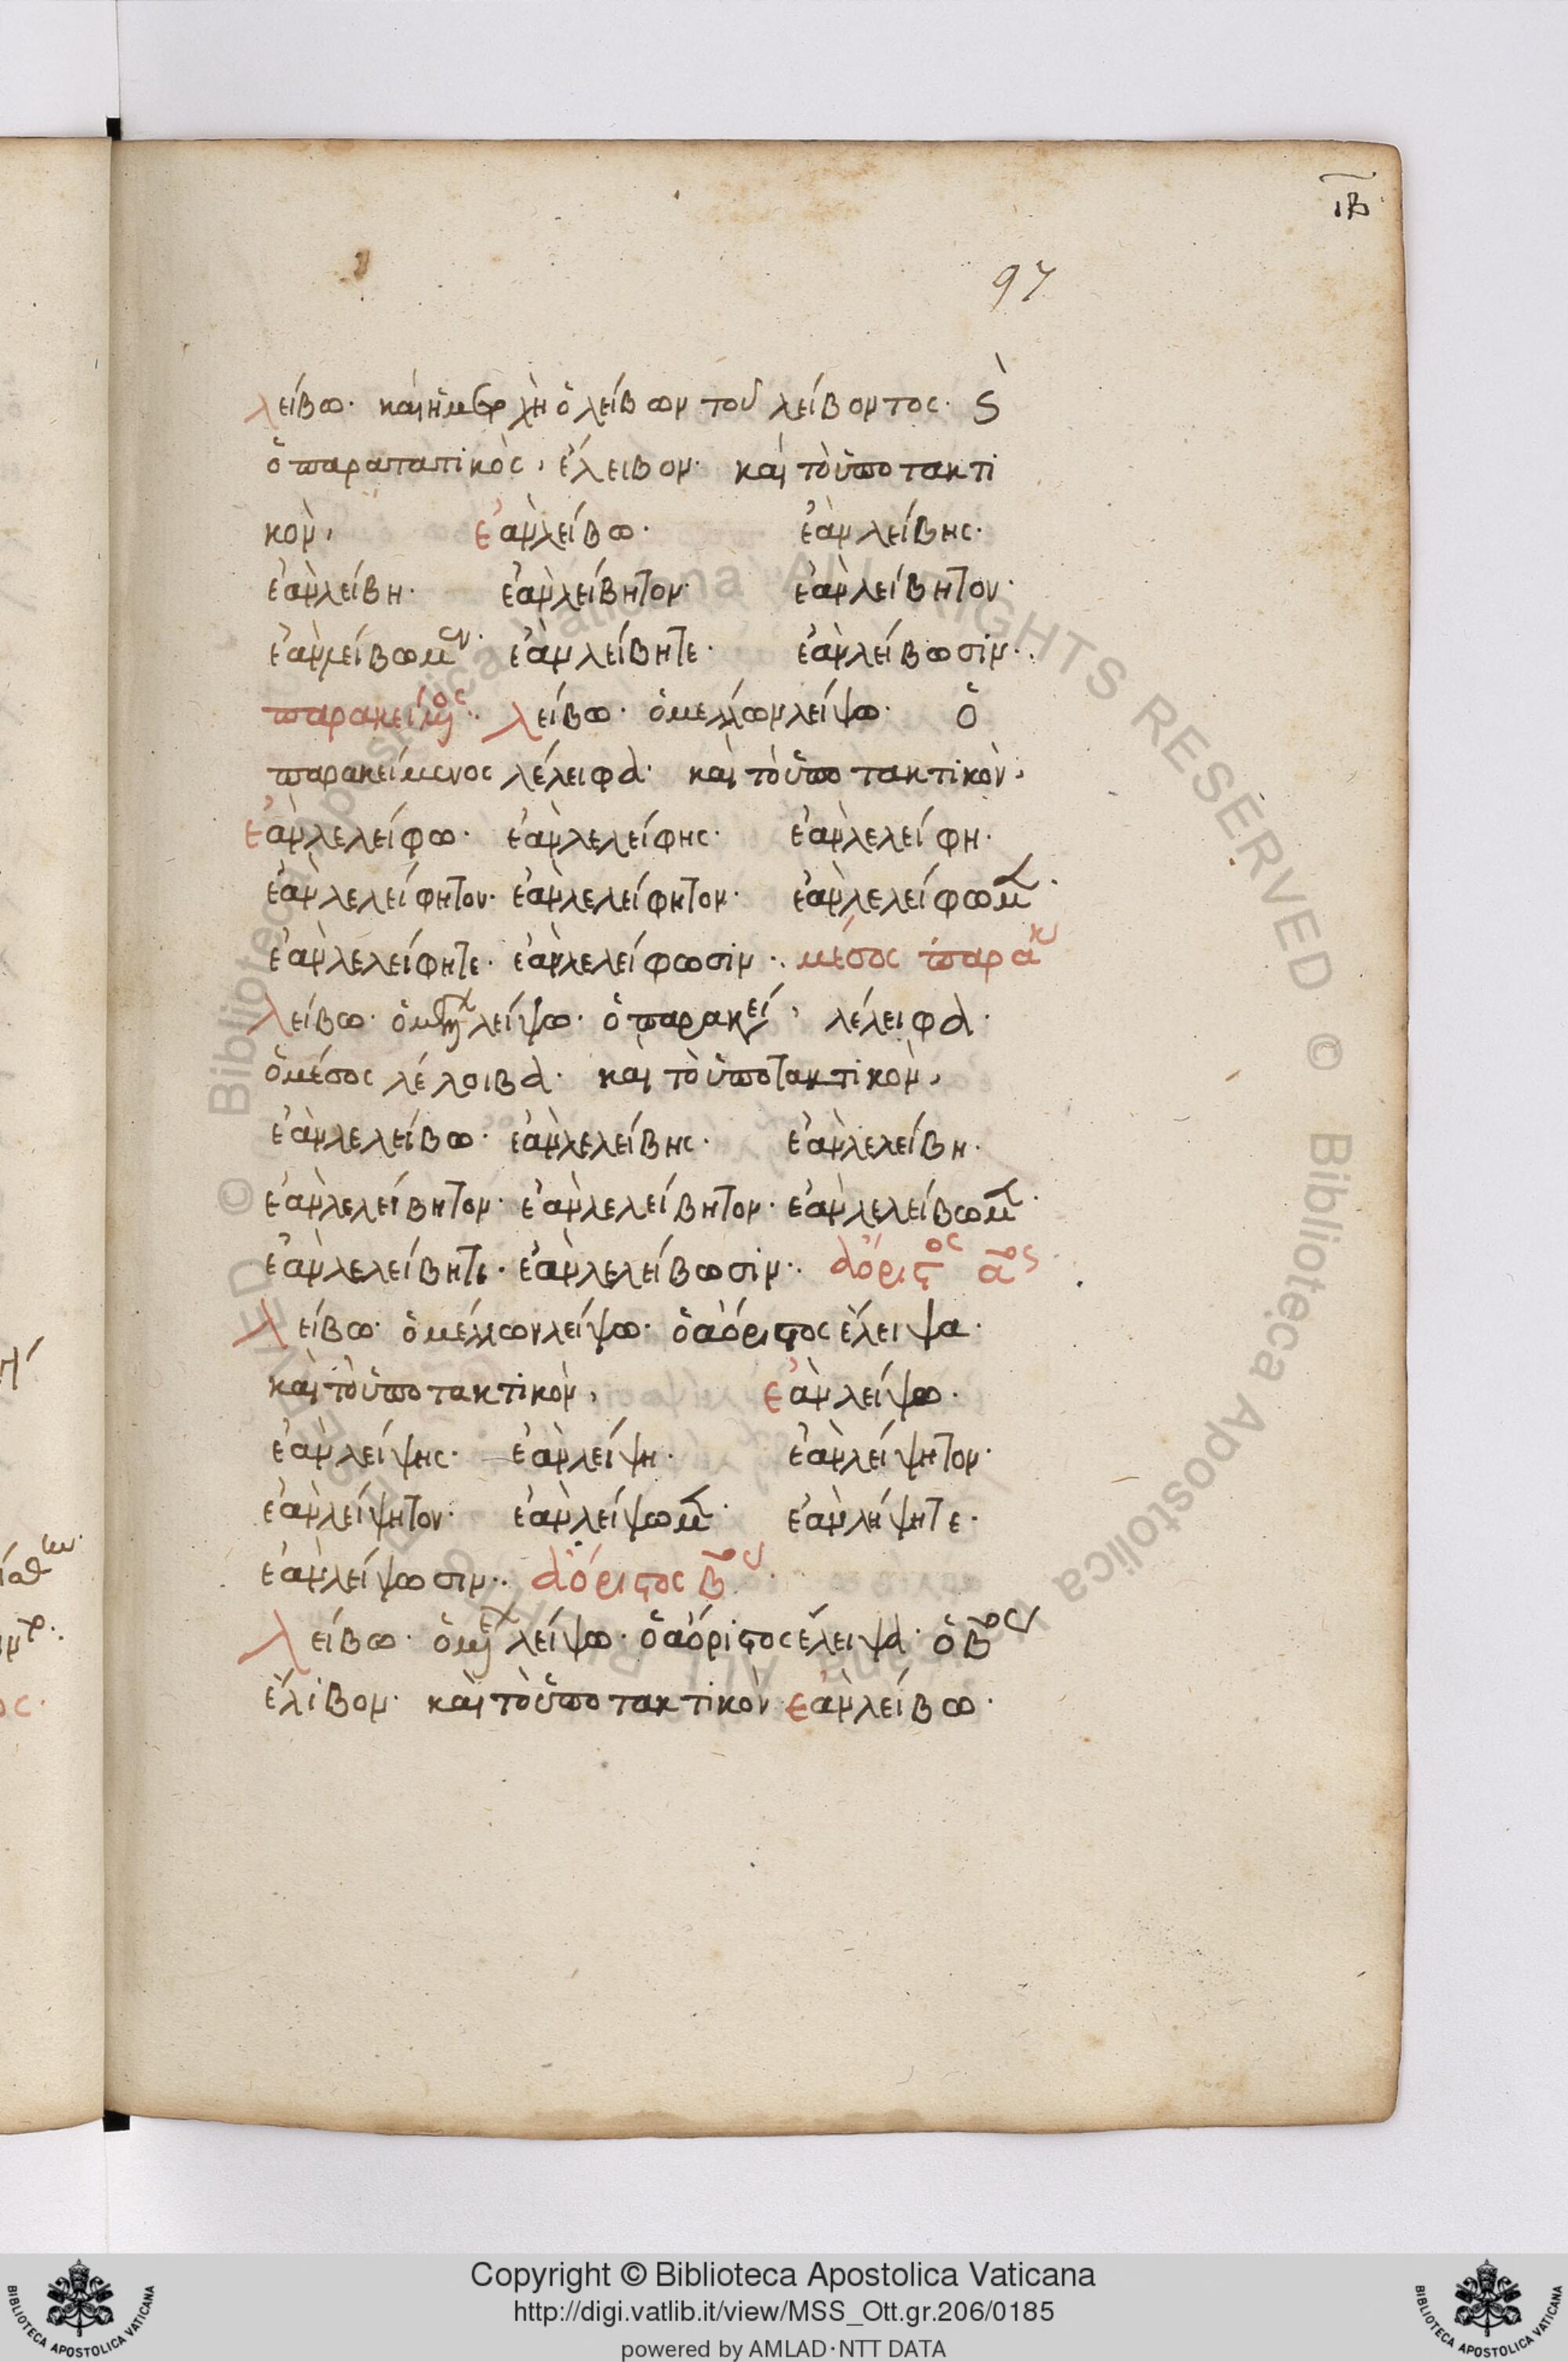 ιβ
97
λείβω· καὶ ἡ μετοχὴ ὁ λείβων τοῦ λείβοντος· καὶ
ὁ παρατατικὸς, ἔλειβον· καὶ τὸ ὑποτακτι
κὸν, ἐὰν λείβω· ἐὰν λείβης·
ἐὰν λείβη· ἐὰν λείβητον· ἐὰν λείβητον·
ἐὰν λείβωμεν· ἐὰν λείβητε· ἐὰν λείβωσιν·
παρακείμενος· λείβω· ὁ μέλλων λείψω· ὁ
παρακείμενος λέλειφα· καὶ τὸ ὑποτακτικὸν,
ἐὰν λελείφω· ἐὰν λελείφης· ἐὰν λελείφη·
ἐὰν λελείφητον· ἐὰν λελείφητον· ἐὰν λελείφωμ
ἐὰν λελείφητε· ἐὰν λελείφωσιν· μέσος παρακ
λείβω· ὁ μελ λείψω· ὁ παρακεί, λέλειφα·
ὁ μέσος λέλοιβα· καὶ τὸ ὑποτακτικὸν,
ἐὰν λελείβω· ἐὰν λελείβης· ἐὰν λελείβη·
ἐὰν λελείβητον· ἐὰν λελείβητον· ἐὰν λελείβωμ
ἐὰν λελείβητε· ἐὰν λελείβωσιν· ἀόριστος αος
λείβω· ὁ μέλλων λείψω· ὁ ἀόριστος ἔλειψα·
καὶ τὸ ὑποτακτικὸν, ἐὰν λείψω·
ἐὰν λείψης· ἐὰν λείψη· ἐὰν λείψητον·
ἐὰν λείψητον· ἐὰν λείψωμ ἐὰν λήψητε·
ἐὰν λείψωσιν· ἀόριστος βος
λείβω· ὁ μελ λείψω· ὁ ἀόριστος ἔλειψα· ὁ βος
ἔλιβον· καὶ τὸ ὑποτακτικὸν ἐὰν λείβω·
Copyright © Biblioteca Apostolica Vaticana
http://digi.vatlib.it/view/MSS_Ott.gr.206/0185
powered by AMLAD·NTT DATA